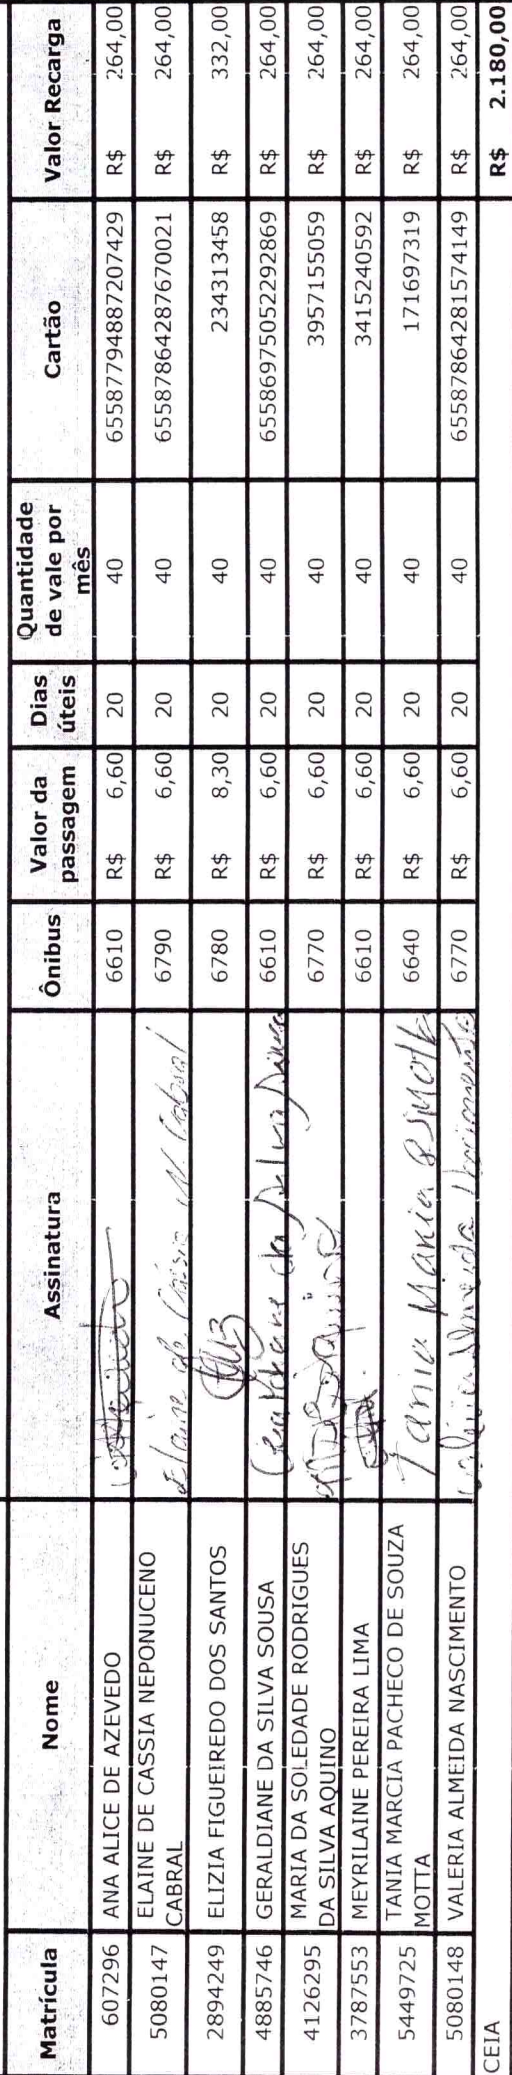 Matrícula Nome Assinatura Ônibus Valor da passagem Dias úteis Quantidade de vale por mês Cartão Valor Recarga
607296 ANA ALICE DE AZEVEDO 6610 R$ 6,60 20 40 65587794887207429 R$ 264,00
5080147 ELAINE DE CASSIA NEPONUCENO CABRAL Elaine de Cássia N Cabral 6790 R$ 6,60 20 40 65587864287670021 R$ 264,00
2894249 ELIZIA FIGUEIREDO DOS SANTOS 6780 R$ 8,30 20 40 234313458 R$ 332,00
4885746 GERALDIANE DA SILVA SOUSA Geraldiane da Silva Sousa 6610 R$ 6,60 20 40 6558697505229286​9 R$ 264,00
4126295 MARIA DA SOLEDADE RODRIGUES DA SILVA AQUINO 6770 R$ 6,60 20 40 3957155059 R$ 264,00
3787553 MEYRILAINE PEREIRA LIMA 6610 R$ 6,60 20 40 3415240592 R$ 264,00
5449725 TANIA MARCIA PACHECO DE SOUZA MOTTA Tania Marcia PSMotta 6640 R$ 6,60 20 40 171697319 R$ 264,00
5080148 VALERIA ALMEIDA NASCIMENTO Valéria Almeida Nascimento 6770 R$ 6,60 20 40 65587864281574149 R$ 264,00
CEIA R$ 2.180,00